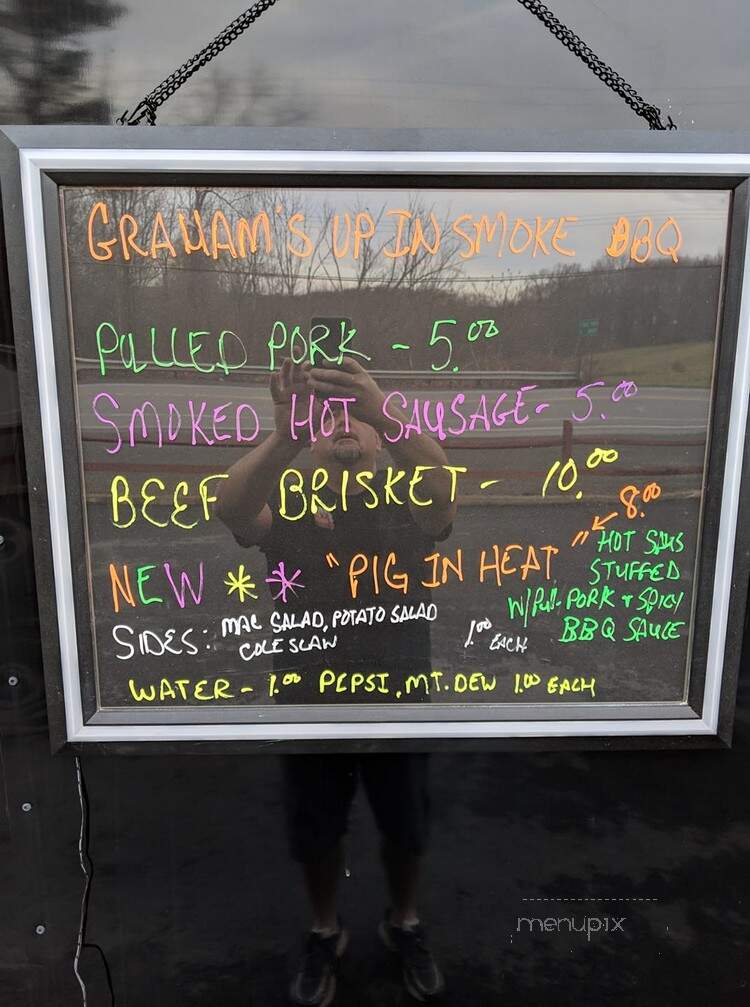 GRAHAM'S UP IN SMOKE BBQ
PULLED PORK - 5.00
SMOKED HOT SAUSAGE - 5.00
BEEF BRISKET - 10.00
NEW ** "PIG IN HEAT" 8.00
HOT SAUS
STUFFED
W/Pull-PORK + SPICY
BBQ SAUCE
SIDES: MAC SALAD, POTATO SALAD
COLE SLAW 1.00 EACH
WATER - 1.00 PEPSI, MT. DEW 1.00 EACH
menupix